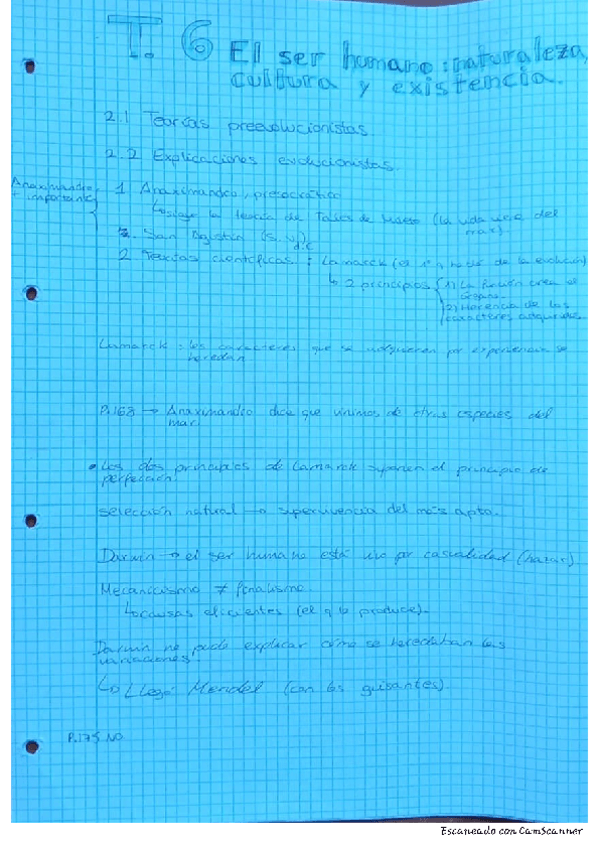 T. 6 El ser humano: naturaleza,
cultura y existencia.
2.1 Teorías preevolucionistas.
2.2 Explicaciones evolucionistas.
Anaximandro
+ importante
1 Anaximandro, presocrático
↳ sigue la teoría de Tales de Mileto (la vida viene del
mar)
2. San Agustín (S. V)
d.C
2 Teorías científicas: Lamarck (el 1º q habló de la evolución)
↳ 2 principios 1) La función crea el
órgano.
2) Herencia de los
caracteres adquiridos.
Lamarck: los caracteres que se adquieren por experiencia se
heredan
P.168 → Anaximandro dice que vinimos de otras especies del
mar.
• Los dos principios de Lamarck suponen el principio de
perfección.
selección natural → supervivencia del más apto.
Darwin → el ser humano está vivo por casualidad (hazar).
Mecanicismo ≠ finalismo.
↳ causas eficientes (el q lo produce).
Darwin no pudo explicar cómo se heredaban las
variaciones.
↳ Llegó Mendel (con los guisantes).
P.175 NO
Escaneado con CamScanner